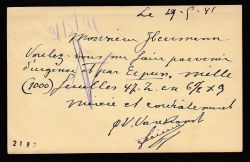 Le 29-5-41
Monsieur Hermann
Voulez-vous me faire parvenir
d'urgence et par Expres, mille
(1000) feuilles 47. h. en 6½ x 9
Merci et cordialement
2187